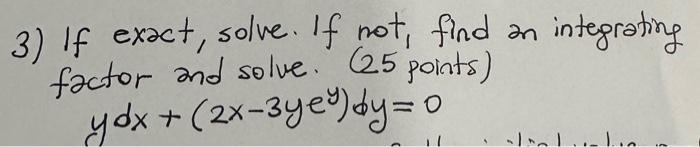 3) If exact, solve. If not, find an integrating
factor and solve. (25 points)
ydx + (2x-3yeʸ)dy = 0